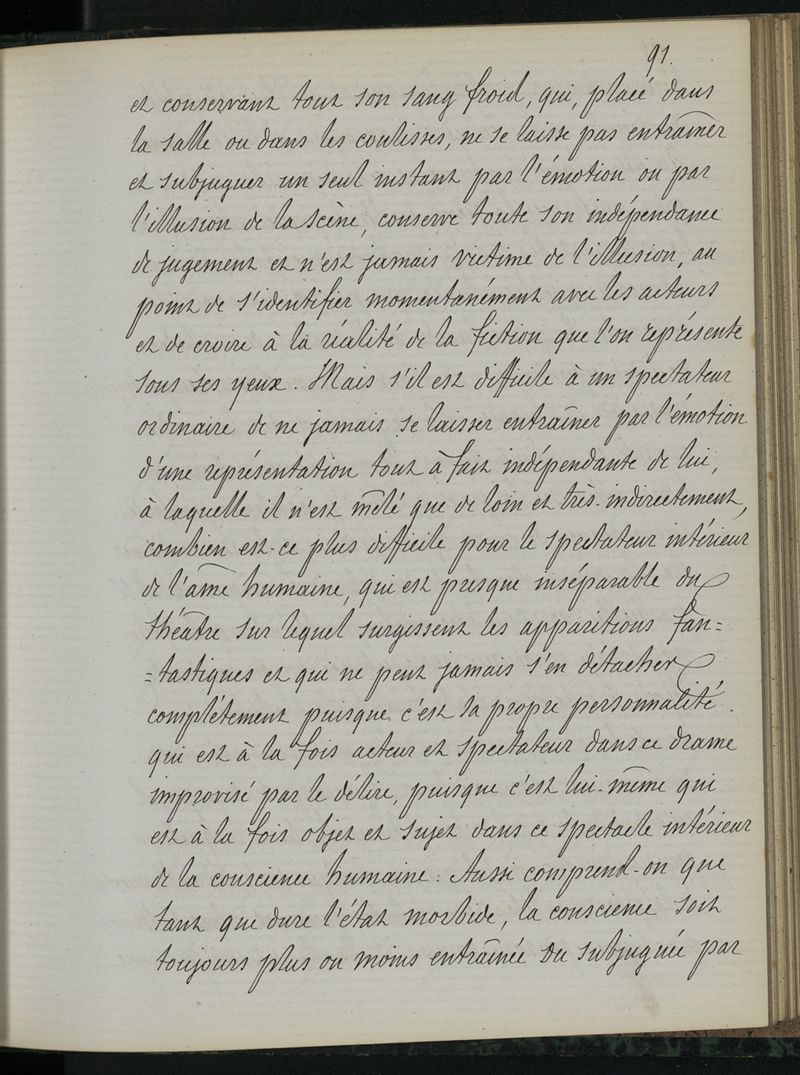 91.
et conservant tout son sang froid, qui, placé dans
la salle ou dans les coulisses, ne se laisse pas entraîner
et subjuguer un seul instant par l'émotion ou par
l'illusion de la scène, conserve toute son indépendance
de jugement et n'est jamais victime de l'illusion, au
point de s'identifier momentanément avec les acteurs
et de croire à la réalité de la fiction que l'on représente
sous ses yeux. Mais s'il est difficile à un spectateur
ordinaire de ne jamais se laisser entraîner par l'émotion
d'une représentation tout à fait indépendante de lui,
à laquelle il n'est mêlé que de loin et très-indirectement,
combien est-ce plus difficile pour le spectateur intérieur
de l'âme humaine, qui est presque inséparable du
théâtre sur lequel surgissent les apparitions fan=
=tastiques et qui ne peut jamais s'en détacher
complétement puisque c'est sa propre personnalité.
qui est à la fois acteur et spectateur dans ce drame
improvisé par le délire, puisque c'est lui-même qui
est à la fois objet et sujet dans ce spectacle intérieur
de la conscience humaine. Aussi comprend-on que
tant que dure l'état morbide, la conscience soit
toujours plus ou moins entraînée ou subjuguée par